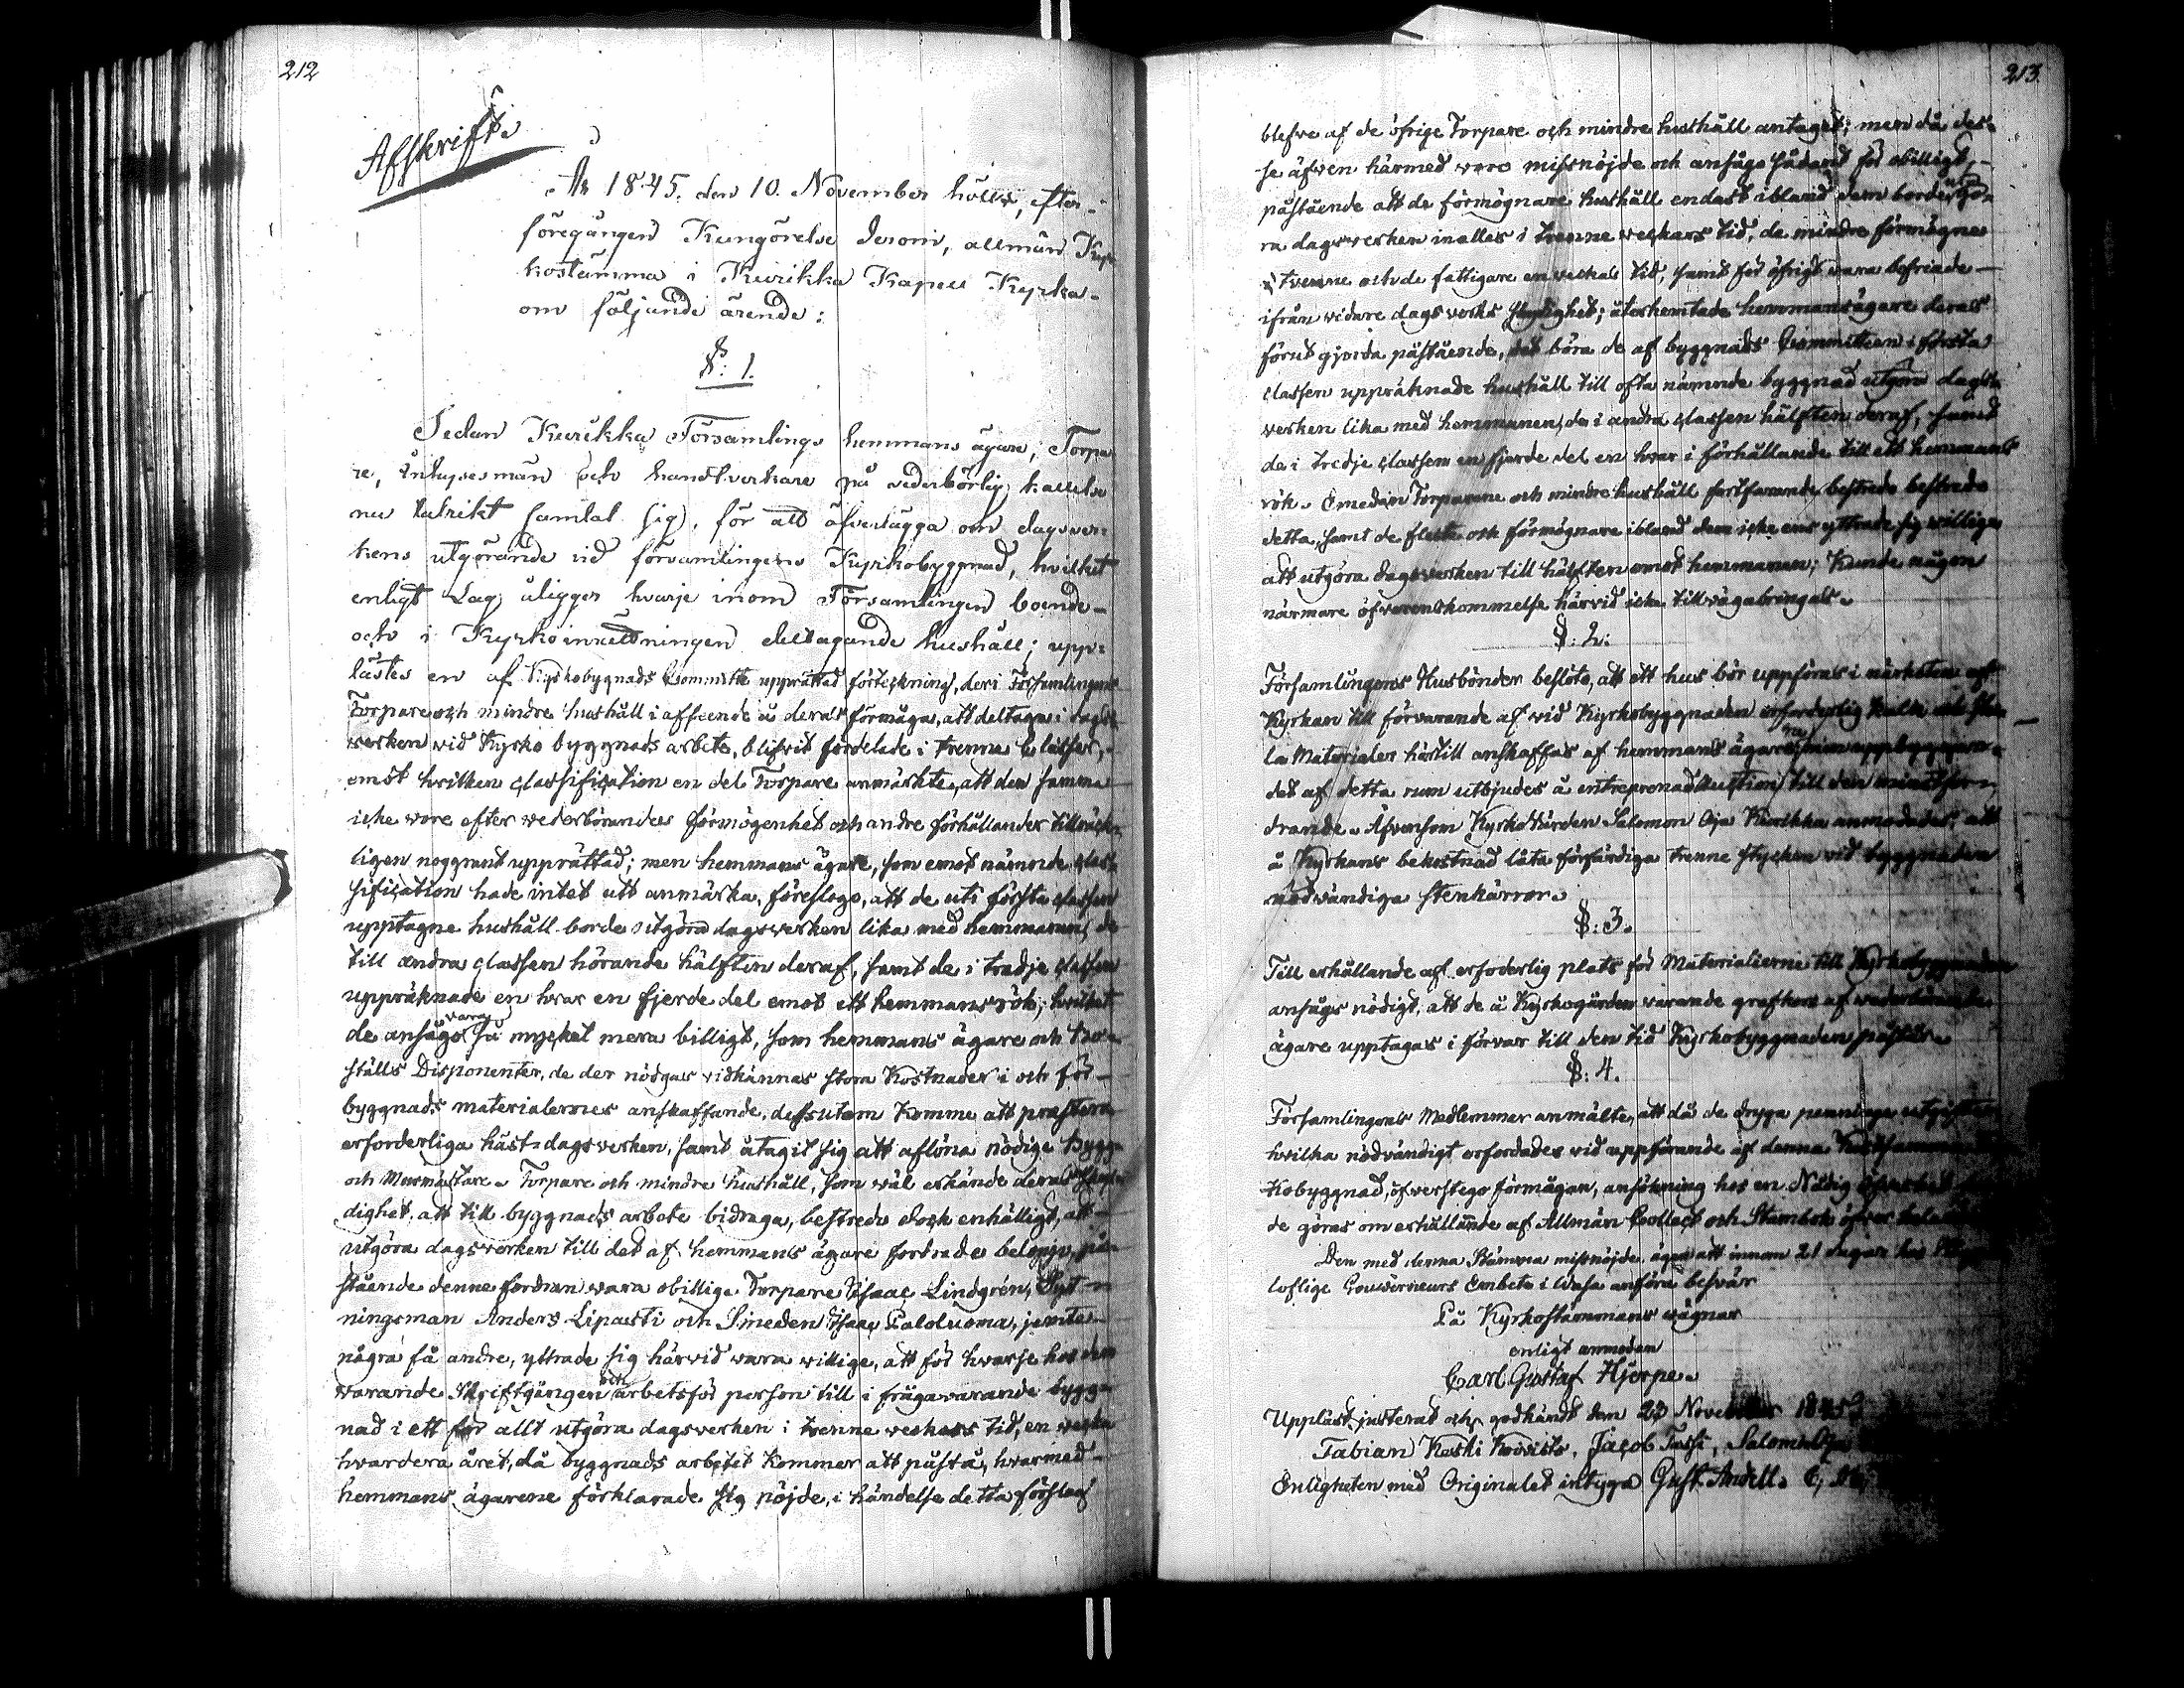 212
Afskrift.
År 1845. den 10. November hölls, efter-
föregången Kungörelse derom, allmän Kyr-
kostämma i Kurikka Kapell Kyrka-
om följande ärende:
§: 1.
Sedan Kurikka Församlings hemmans ägare, Torpa
re, Inhysesmän och handtverkare på vederbörlig kallelse
nu talrikt samlat sig, för att öfverlägga om dagsver-
kens utgörande vid församlingens Kyrkobyggnad, hvilket
enligt Lag åligger hvarje inom Församlingen boende-
och i Kyrkoinrättningen deltagande hushåll; upp-
lästes en af Kyrkobygnads Committé upprättad förteckning, deri Församlingens
Torpare och mindre hushåll i afseende å deras förmåga, att deltaga i dags-
verken vid Kyrko byggnads arbete, blifvit fördelade i trenne Classer,-
emot hvilken classification en del Torpare anmärkte, att den samma
icke wore efter wederbörandes förmögenhet och andre förhållander tillräck-
ligen noggrant upprättad; men hemmans ägare, som emot nämnde clas-
sification hade intet att anmärka, föreslogo, att de uti första classen
upptagne hushåll borde utgöra dagsverken lika med hemmanen, de
till andra classen hörande hälften deraf, samt de i tredje classen
uppräknade en hvar en fjerde del emot ett hemmans rök; hvilket
de ansågo vara så mycket mera billigt, som hemmans ägare och bo-
ställs Disponenter, de der nödgas vidkännas stora Kostnader i och för-
byggnads materialernes anskaffande, dessutom komme att præstera
erforderliga häst-dagsverken, samt åtagit sig att aflöna nödige bygg-
och Murmästare. Torpare och mindre hushåll, som wäl erkände deras skyl-
dighet, att till byggnads arbete bidraga, bestredo dock enhälligt, att
utgöra dagsverken till det af hemmans ägare fordrade belopp, på-
stående denne fordran wara obillig. Torpare Isaac Lindgrén, Syt-
ningsman Anders Lipasti och Smeden Isaac Paloluoma, jemte
några få andre, yttrade sig härvid wara willige, att för hvarje hos dem
warande Skriftgången och arbetsför person till i fråga warande bygg-
nad i ett för allt utgöra dagsverken i trenne weckors tid, en wecka
hvardera året, då byggnads arbetet kommer att påstå, hvarmed-
hemmans ägarene förklarade sig nöjde, i händelse detta förslag
213
blefve af de öfrige Torpare och mindre hushåll antaget; men då des-
se äfwen härmed woro missnöjde och ansågo sådant för obilligt,-
påstående att de förmögnare hushåll endast ibland dem borde utgö-
ra dagsverken inalles i trenne weckors tid, de mindre förmögne
i tvenne och de fattigare en weckas tid, samt för öfrigt wara befriade-
ifrån widare dags verks skyldighet; återhemtade hemmansägare deras
förut gjorda påstående, det böra de af byggnads Committeen i första
classen uppräknade hushåll till ofta nämnde byggnad utgöra dags-
verken lika med hemmanen, de i andra classen hälften deraf, samt
de i tredje classen en fjerde del en hvar i förhållande till ett hemmans
rök. Emedan Torparene och mindre hushåll fortfarande bestredo bestredo
detta, samt de fleste och förmögnare ibland dem icke ens yttrade sig willige
att utgöra dagsverken till hälften emot hemmanen; Kunde någon
närmare öfverenskommelse härvid icke tillvägabringas.
§: 2:
Församlingens Husbönder beslöto, att ett hus bör uppföras i närheten af
Kyrkan till förvarande af vid Kyrkobyggnaden erforderlig kalk
la Materialer härtill anskaffas af hemmans ägare, men uppbyggan-
det af detta rum utbjudes å entreprenad Auction till den minstfor-
drande. Äfvensom KyrkoVärden Salomon Oja Kurikka anmodades, att
å Kyrkans bekostnad låta förfärdiga trenne stycken vid byggnaden
nödvändiga stenkärror.
§: 3.
Till erhållande af erfoderlig plats för Materialierne till Kyrkobyggnaden
ansågs nödigt, att de å Kyrkogården warande grafkors af wederbörande
ägare upptagas i förvar till den tid Kyrkobyggnaden påstår.
§: 4.
Församlingens Medlemmar anmälte, att då de dryga penninge utgifter
hvilka nödvändigt erfordades vid uppförande af denna
kobyggnad, öfverstego förmågan, ansökning hos en Nådig Öfverhet
de göras om erhållande af Allmän Collect och Stambok öfver hela
Den med denna Stämma missnöjde, ägen att innom 21 dagar hos
loflige Gouverneurs Embete i Wasa anföra besvär
På Kyrkostämmans wägnar
enligt anmodan
Carl Gustaf Hjerpe.
Uppläst, justerat och godkändt den 23 November 1845
Fabian Keski Koivisto, Jacob Tassi, Salomon Oja
Enligheten med Originalet intyga Gust. Andell.